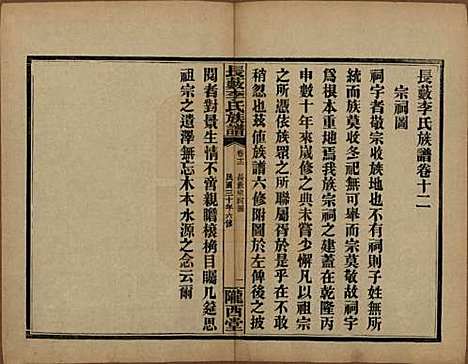 長藪李氏族譜卷十二
宗祠圖
祠宇者敬宗收族地也不有祠則子姓無
統而族莫收冬祀無可舉而宗莫敬故祠
爲根本重地焉我族宗祠之建蓋在乾隆丙
申數十年來歲修之典未嘗少懈凡以祖宗
之所憑依族眾之所聯屬胥於是乎在不可
稍忽也茲值族譜六修附圖於左俾後之披
長藪李氏族譜
卷十二
長藪宗祠圖
民國三十年六修
一
隴西堂
閱者對景生情不啻親瞻榱桷目矚几筵思
祖宗之遺澤無忘木本水源之念云爾